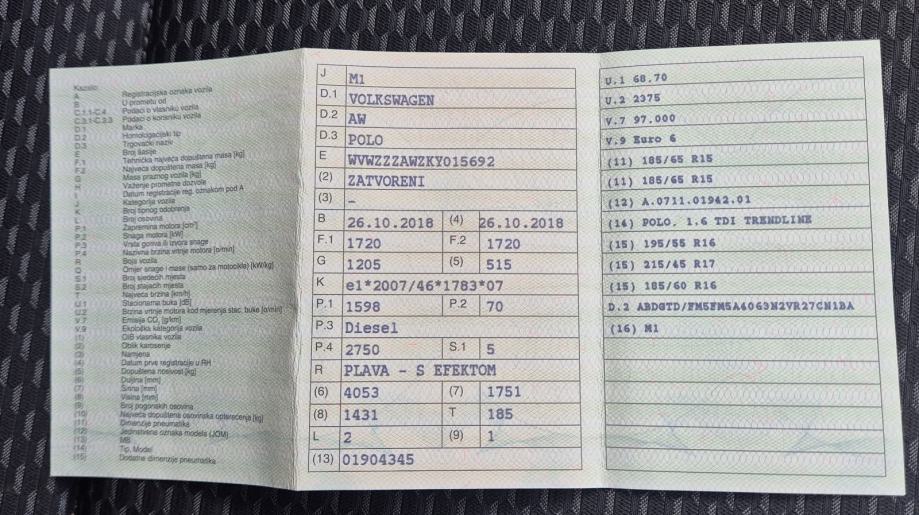 Kazalo:
A Registracijska oznaka vozila
B U prometu od
C.1.1-C.4 Podaci o vlasniku vozila
C.3.1-C.3.3 Podaci o korisniku vozila
D.1 Marka
D.2 Homologacijski tip
D.3 Trgovački naziv
E Broj šasije
F.1 Tehnička najveća dopuštena masa [kg]
F.2 Najveća dopuštena masa [kg]
G Masa praznog vozila [kg]
H Važenje prometne dozvole
I Datum registracije reg. oznakom pod A
J Kategorija vozila
K Broj tipnog odobrenja
L Broj osovina
P.1 Zapremina motora [cm³]
P.2 Snaga motora [kW]
P.3 Vrsta goriva ili izvora snage
P.4 Nazivna brzina vrtnje motora [o/min]
R Boja vozila
Q Omjer snage i mase (samo za motocikle) [kW/kg]
S.1 Broj sjedećih mjesta
S.2 Broj stajaćih mjesta
T Najveća brzina [km/h]
U.1 Stacionarna buka [dB]
U.2 Brzina vrtnje motora kod mjerenja stac. buke [o/min]
V.7 Emisija CO₂ [g/km]
V.9 Ekološka kategorija vozila
(1) OIB vlasnika vozila
(2) Oblik karoserije
(3) Namjena
(4) Datum prve registracije u RH
(5) Dopuštena nosivost [kg]
(6) Duljina [mm]
(7) Širina [mm]
(8) Visina [mm]
(9) Broj pogonskih osovina
(10) Najveća dopuštena osovinska opterećenja [kg]
(11) Dimenzije pneumatika
(12) Jedinstvena oznaka modela (JOM)
(13) MB
(14) Tip, Model
(15) Dodatne dimenzije pneumatika
J M1
D.1 VOLKSWAGEN
D.2 AW
D.3 POLO
E WVWZZZAWZKY015692
(2) ZATVORENI
(3) -
B 26.10.2018 (4) 26.10.2018
F.1 1720 F.2 1720
G 1205 (5) 515
K e1*2007/46*1783*07
P.1 1598 P.2 70
P.3 Diesel
P.4 2750 S.1 5
R PLAVA - S EFEKTOM
(6) 4053 (7) 1751
(8) 1431 T 185
L 2 (9) 1
(13) 01904345
U.1 68.70
U.2 2375
V.7 97.000
V.9 Euro 6
(11) 185/65 R15
(11) 185/65 R15
(12) A.0711.01942.01
(14) POLO. 1.6 TDI TRENDLINE
(15) 195/55 R16
(15) 215/45 R17
(15) 185/60 R16
D.2 ABDGTD/FM5FM5A4063N2VR27CN1BA
(16) M1